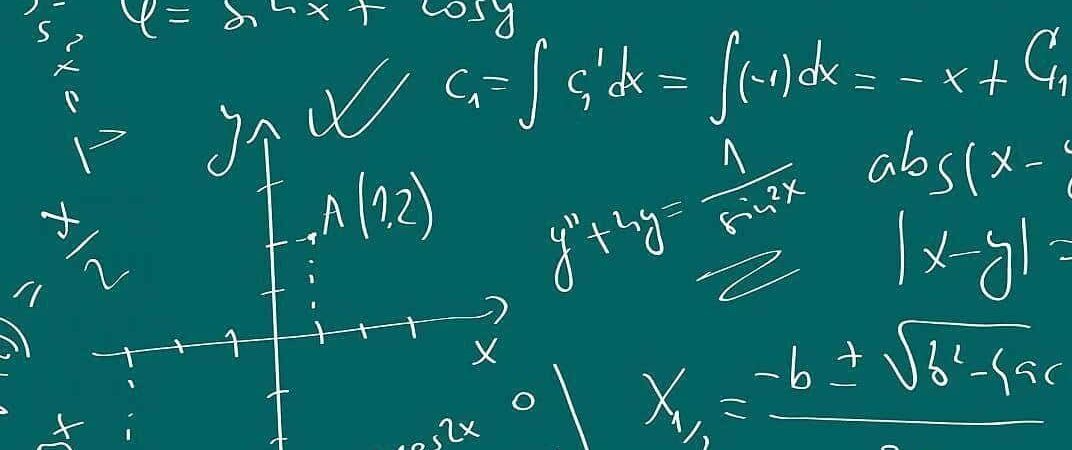 φ = sin x + cos y
C₁ = ∫ C₁'dx = ∫(-1)dx = - x + C₁₁
y
A(1,2)
y'' + 4y = 1/sin²x
abs(x -
|x-y| =
x/2
x
X₁/₂ = -b ± √b²-4ac
cos2x